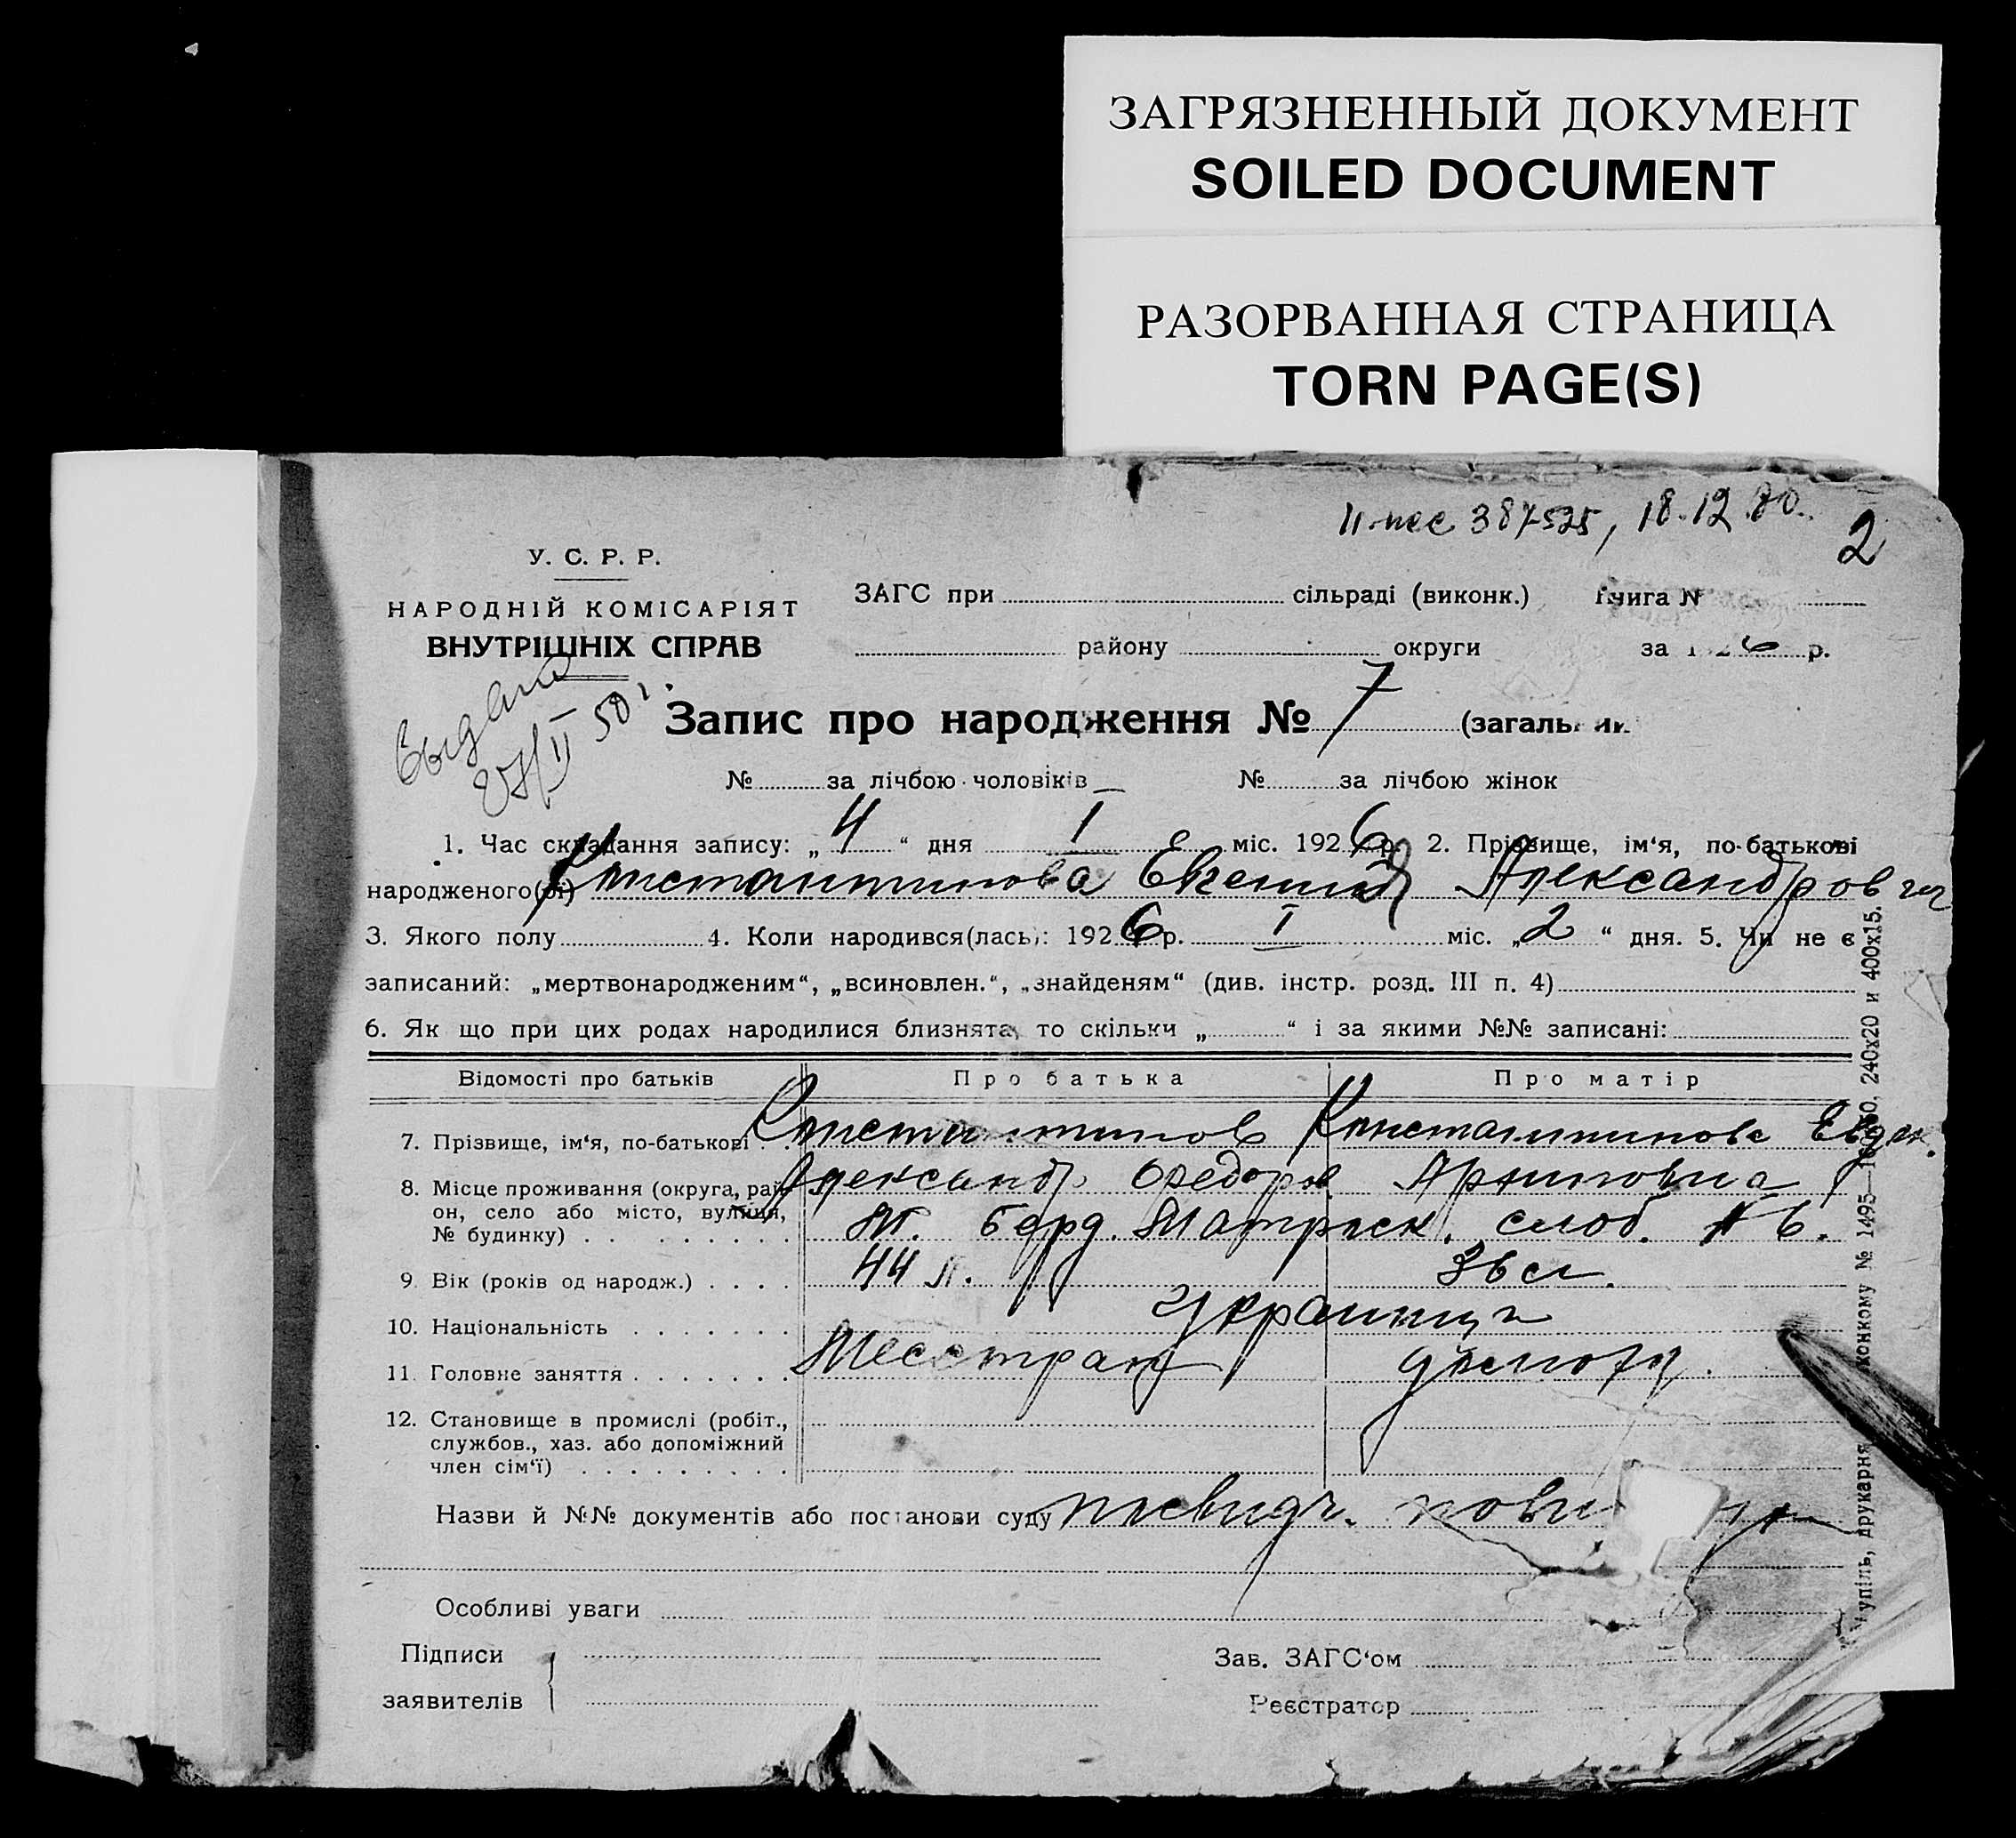 ЗАГРЯЗНЕННЫЙ ДОКУМЕНТ
SOILED DOCUMENT
РАЗОРВАННАЯ СТРАНИЦА
TORN PAGE(S)
387525, 18.12.80.
2
У. С. Р. Р.
НАРОДНІЙ КОМІСАРІЯТ
ВНУТРІШНІХ СПРАВ
ЗАГС при сільраді (виконк.) Книга №
району округи за 1926 р.
Выдано
27/II 50 г.
Запис про народження № 7 (загальний
№ за лічбою чоловіків № за лічбою жінок
1. Час складання запису: „ 4 “ дня I міс. 1926 р. 2. Прізвище, ім‘я, по-батькові
народженого(ої) Константинова Евгений Александрович
3. Якого полу 4. Коли народився(лась): 1926 р. I міс. „ 2 “ дня. 5. Чи не є
записаний: „мертвонародженим“, „всиновлен.“, „знайденям“ (див. інстр. розд. III п. 4)
6. Як що при цих родах народилися близнята, то скільки „ “ і за якими №№ записані:
Відомості про батьків Про батька Про матір
7. Прізвище, ім‘я, по-батькові Константинов Константинова Евдок.
Александр Федоров
8. Місце проживання (округа, рай-
он, село або місто, вулиця,
№ будинку) слоб. № 6.
9. Вік (років од народж.) 44 л. 36
10. Національність украинцы
11. Головне заняття
12. Становище в промислі (робіт.,
службов., хаз. або допоміжний
член сім‘ї)
Назви й №№ документів або постанови суду
Особливі уваги
Підписи
заявителів
Зав. ЗАГС‘ом
Реєстратор
друкарня № 1495—16 240х20 и 400х15.